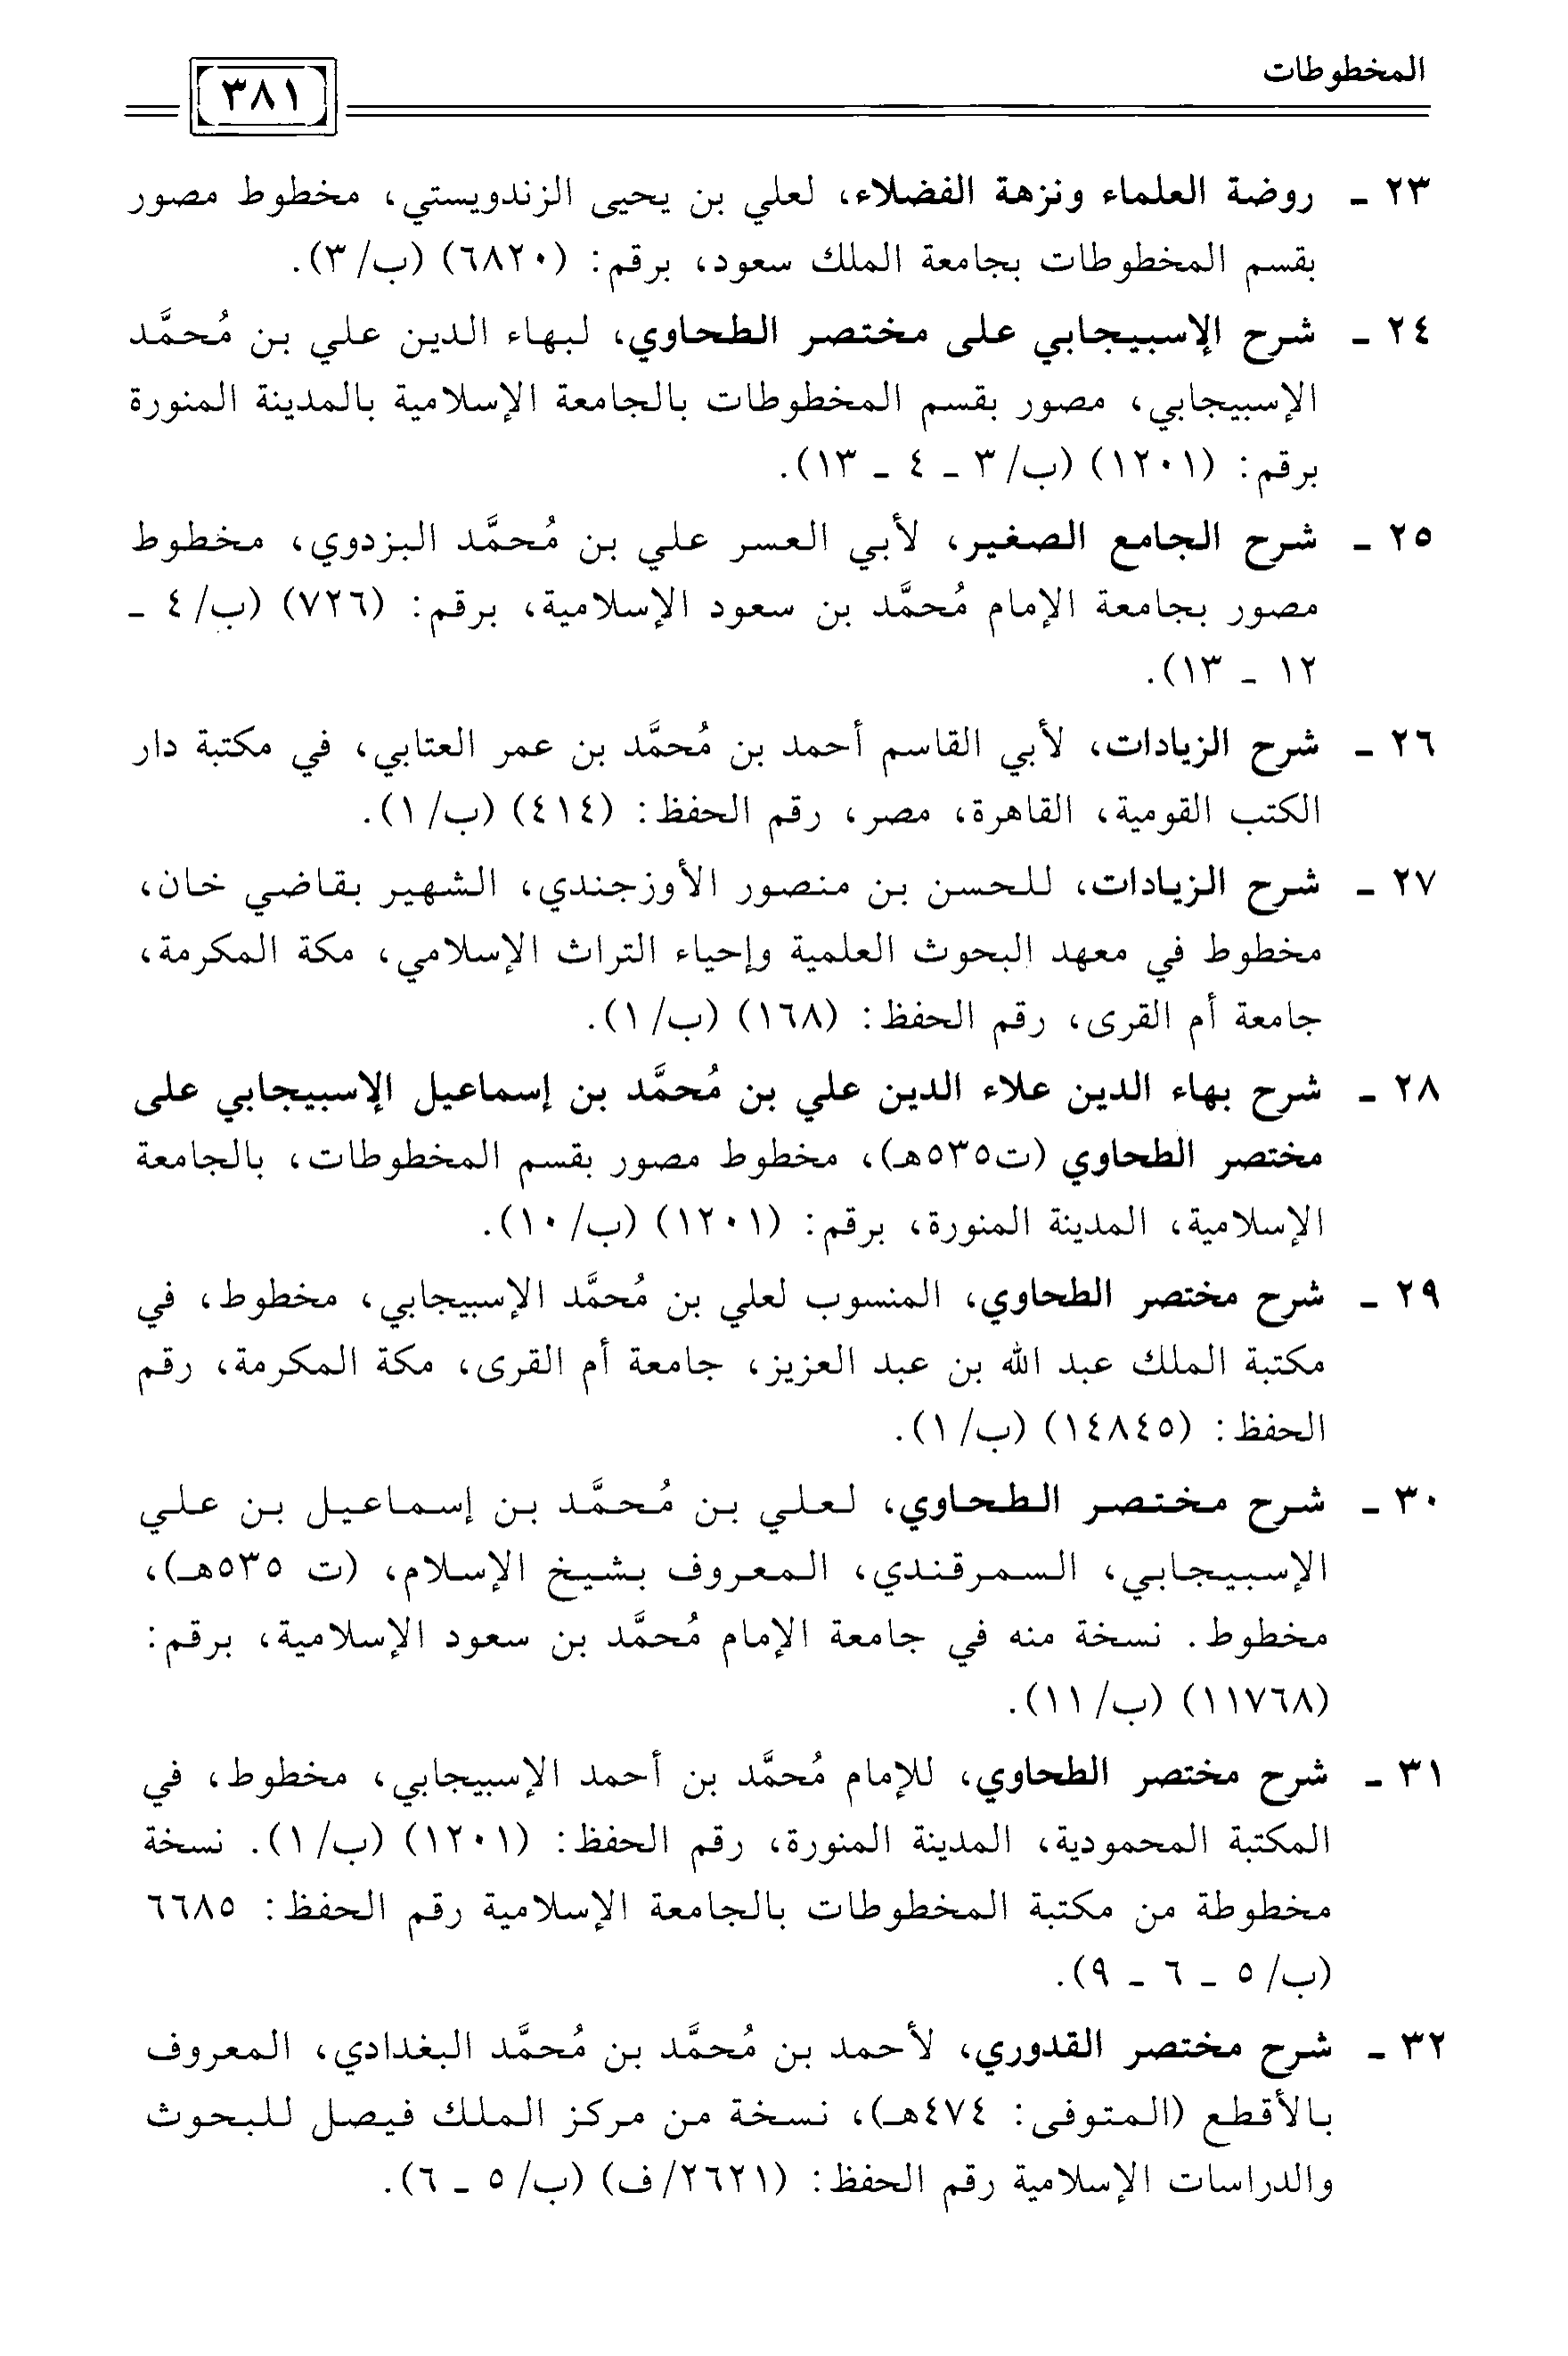 المخطوطات
٣٨١
٢٣ ـ روضة العلماء ونزهة الفضلاء، لعلي بن يحيى الزندويستي، مخطوط مصور
بقسم المخطوطات بجامعة الملك سعود، برقم: (٦٨٢٠) (ب/٣).
٢٤ ـ شرح الإسبيجابي على مختصر الطحاوي، لبهاء الدين علي بن مُحمَّد
الإسبيجابي، مصور بقسم المخطوطات بالجامعة الإسلامية بالمدينة المنورة
برقم: (١٢٠١) (ب/٣ ـ ٤ ـ ١٣).
٢٥ ـ شرح الجامع الصغير، لأبي العسر علي بن مُحمَّد البزدوي، مخطوط
مصور بجامعة الإمام مُحمَّد بن سعود الإسلامية، برقم: (٧٢٦) (ب/٤ ـ
١٢ ـ ١٣).
٢٦ ـ شرح الزيادات، لأبي القاسم أحمد بن مُحمَّد بن عمر العتابي، في مكتبة دار
الكتب القومية، القاهرة، مصر، رقم الحفظ: (٤١٤) (ب/١).
٢٧ ـ شرح الزيادات، للحسن بن منصور الأوزجندي، الشهير بقاضي خان،
مخطوط في معهد البحوث العلمية وإحياء التراث الإسلامي، مكة المكرمة،
جامعة أم القرى، رقم الحفظ: (١٦٨) (ب/١).
٢٨ ـ شرح بهاء الدين علاء الدين علي بن مُحمَّد بن إسماعيل الإسبيجابي على
مختصر الطحاوي (ت٥٣٥هـ)، مخطوط مصور بقسم المخطوطات، بالجامعة
الإسلامية، المدينة المنورة، برقم: (١٢٠١) (ب/١٠).
٢٩ ـ شرح مختصر الطحاوي، المنسوب لعلي بن مُحمَّد الإسبيجابي، مخطوط، في
مكتبة الملك عبد الله بن عبد العزيز، جامعة أم القرى، مكة المكرمة، رقم
الحفظ: (١٤٨٤٥) (ب/١).
٣٠ ـ شرح مختصر الطحاوي، لعلي بن مُحمَّد بن إسماعيل بن علي
الإسبيجابي، السمرقندي، المعروف بشيخ الإسلام، (ت ٥٣٥هـ)،
مخطوط. نسخة منه في جامعة الإمام مُحمَّد بن سعود الإسلامية، برقم:
(١١٧٦٨) (ب/١١).
٣١ ـ شرح مختصر الطحاوي، للإمام مُحمَّد بن أحمد الإسبيجابي، مخطوط، في
المكتبة المحمودية، المدينة المنورة، رقم الحفظ: (١٢٠١) (ب/١). نسخة
مخطوطة من مكتبة المخطوطات بالجامعة الإسلامية رقم الحفظ: ٦٦٨٥
(ب/٥ ـ ٦ ـ ٩).
٣٢ ـ شرح مختصر القدوري، لأحمد بن مُحمَّد بن مُحمَّد البغدادي، المعروف
بالأقطع (المتوفى: ٤٧٤هـ)، نسخة من مركز الملك فيصل للبحوث
والدراسات الإسلامية رقم الحفظ: (٢٦٢١/ف) (ب/٥ ـ ٦).